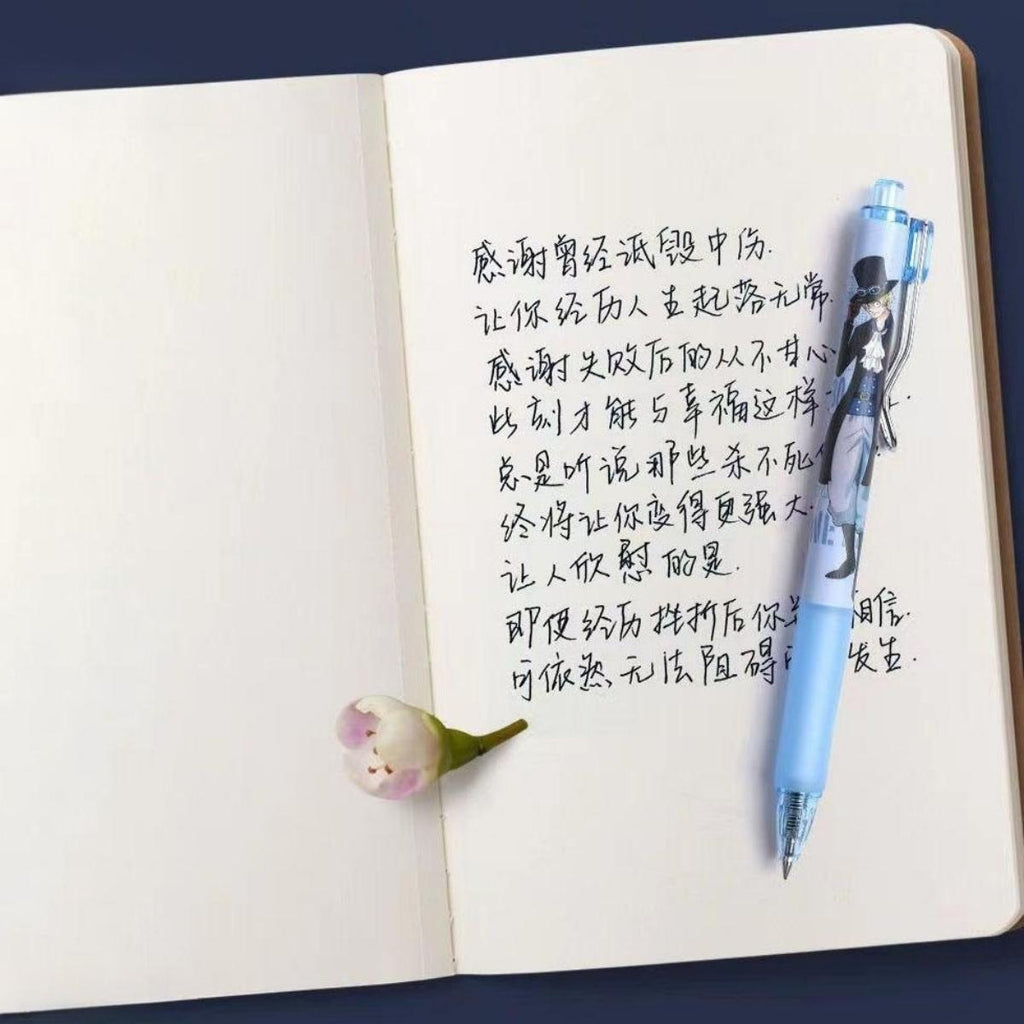 感谢曾经诋毁中伤.
让你经历人生起落无常.
感谢失败后的从不甘心
此刻才能与幸福这样
总是听说那些杀不死
终将让你变得更强大.
让人欣慰的是.
即便经历挫折后你 相信.
可依然无法阻碍 发生.